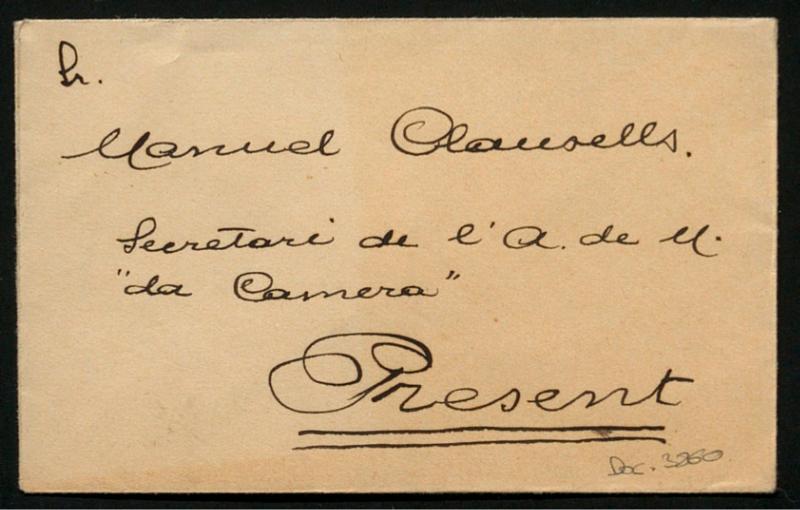 Sr.
Manuel Clausells.
Secretari de l'A. de M.
"da Camera"
Present
Doc. 3260